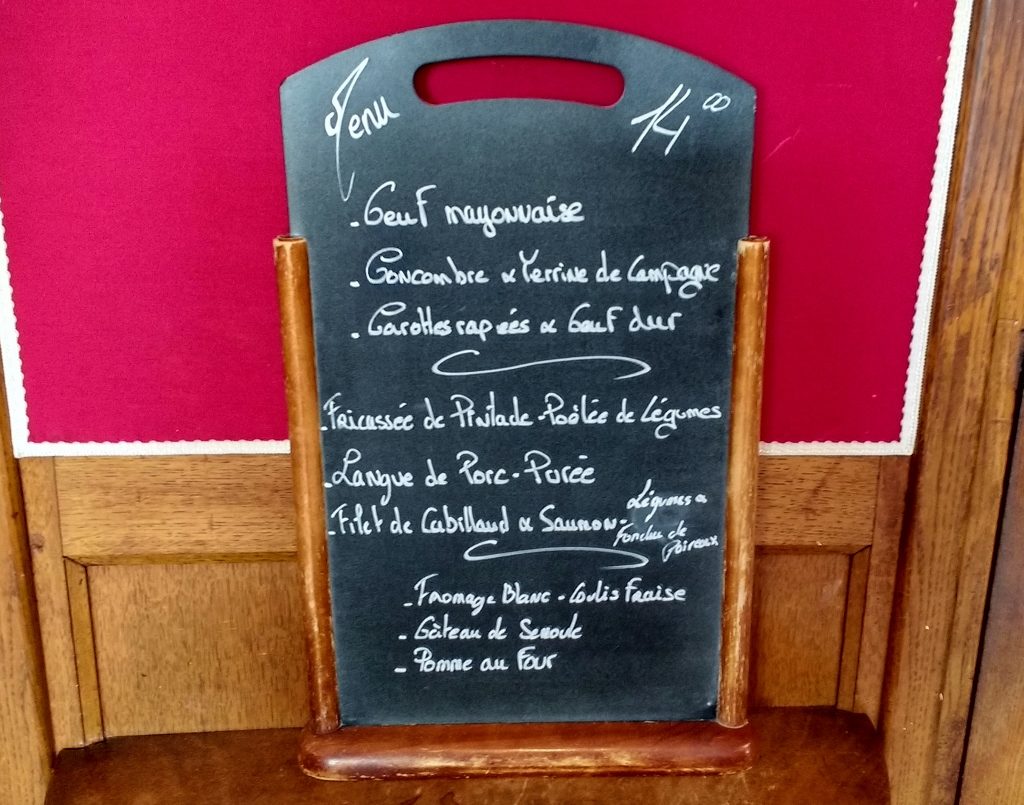 Menu 14 00
- Oeuf mayonnaise
- Concombre & Terrine de Campagne
- Carottes rapées & Oeuf dur
- Fricassée de Pintade - Poêlée de Légumes
- Langue de Porc - Purée
- Filet de Cabillaud & Saumon - Légumes &
Fondue de
Poireaux
- Fromage Blanc - Coulis Fraise
- Gâteau de Semoule
- Pomme au Four